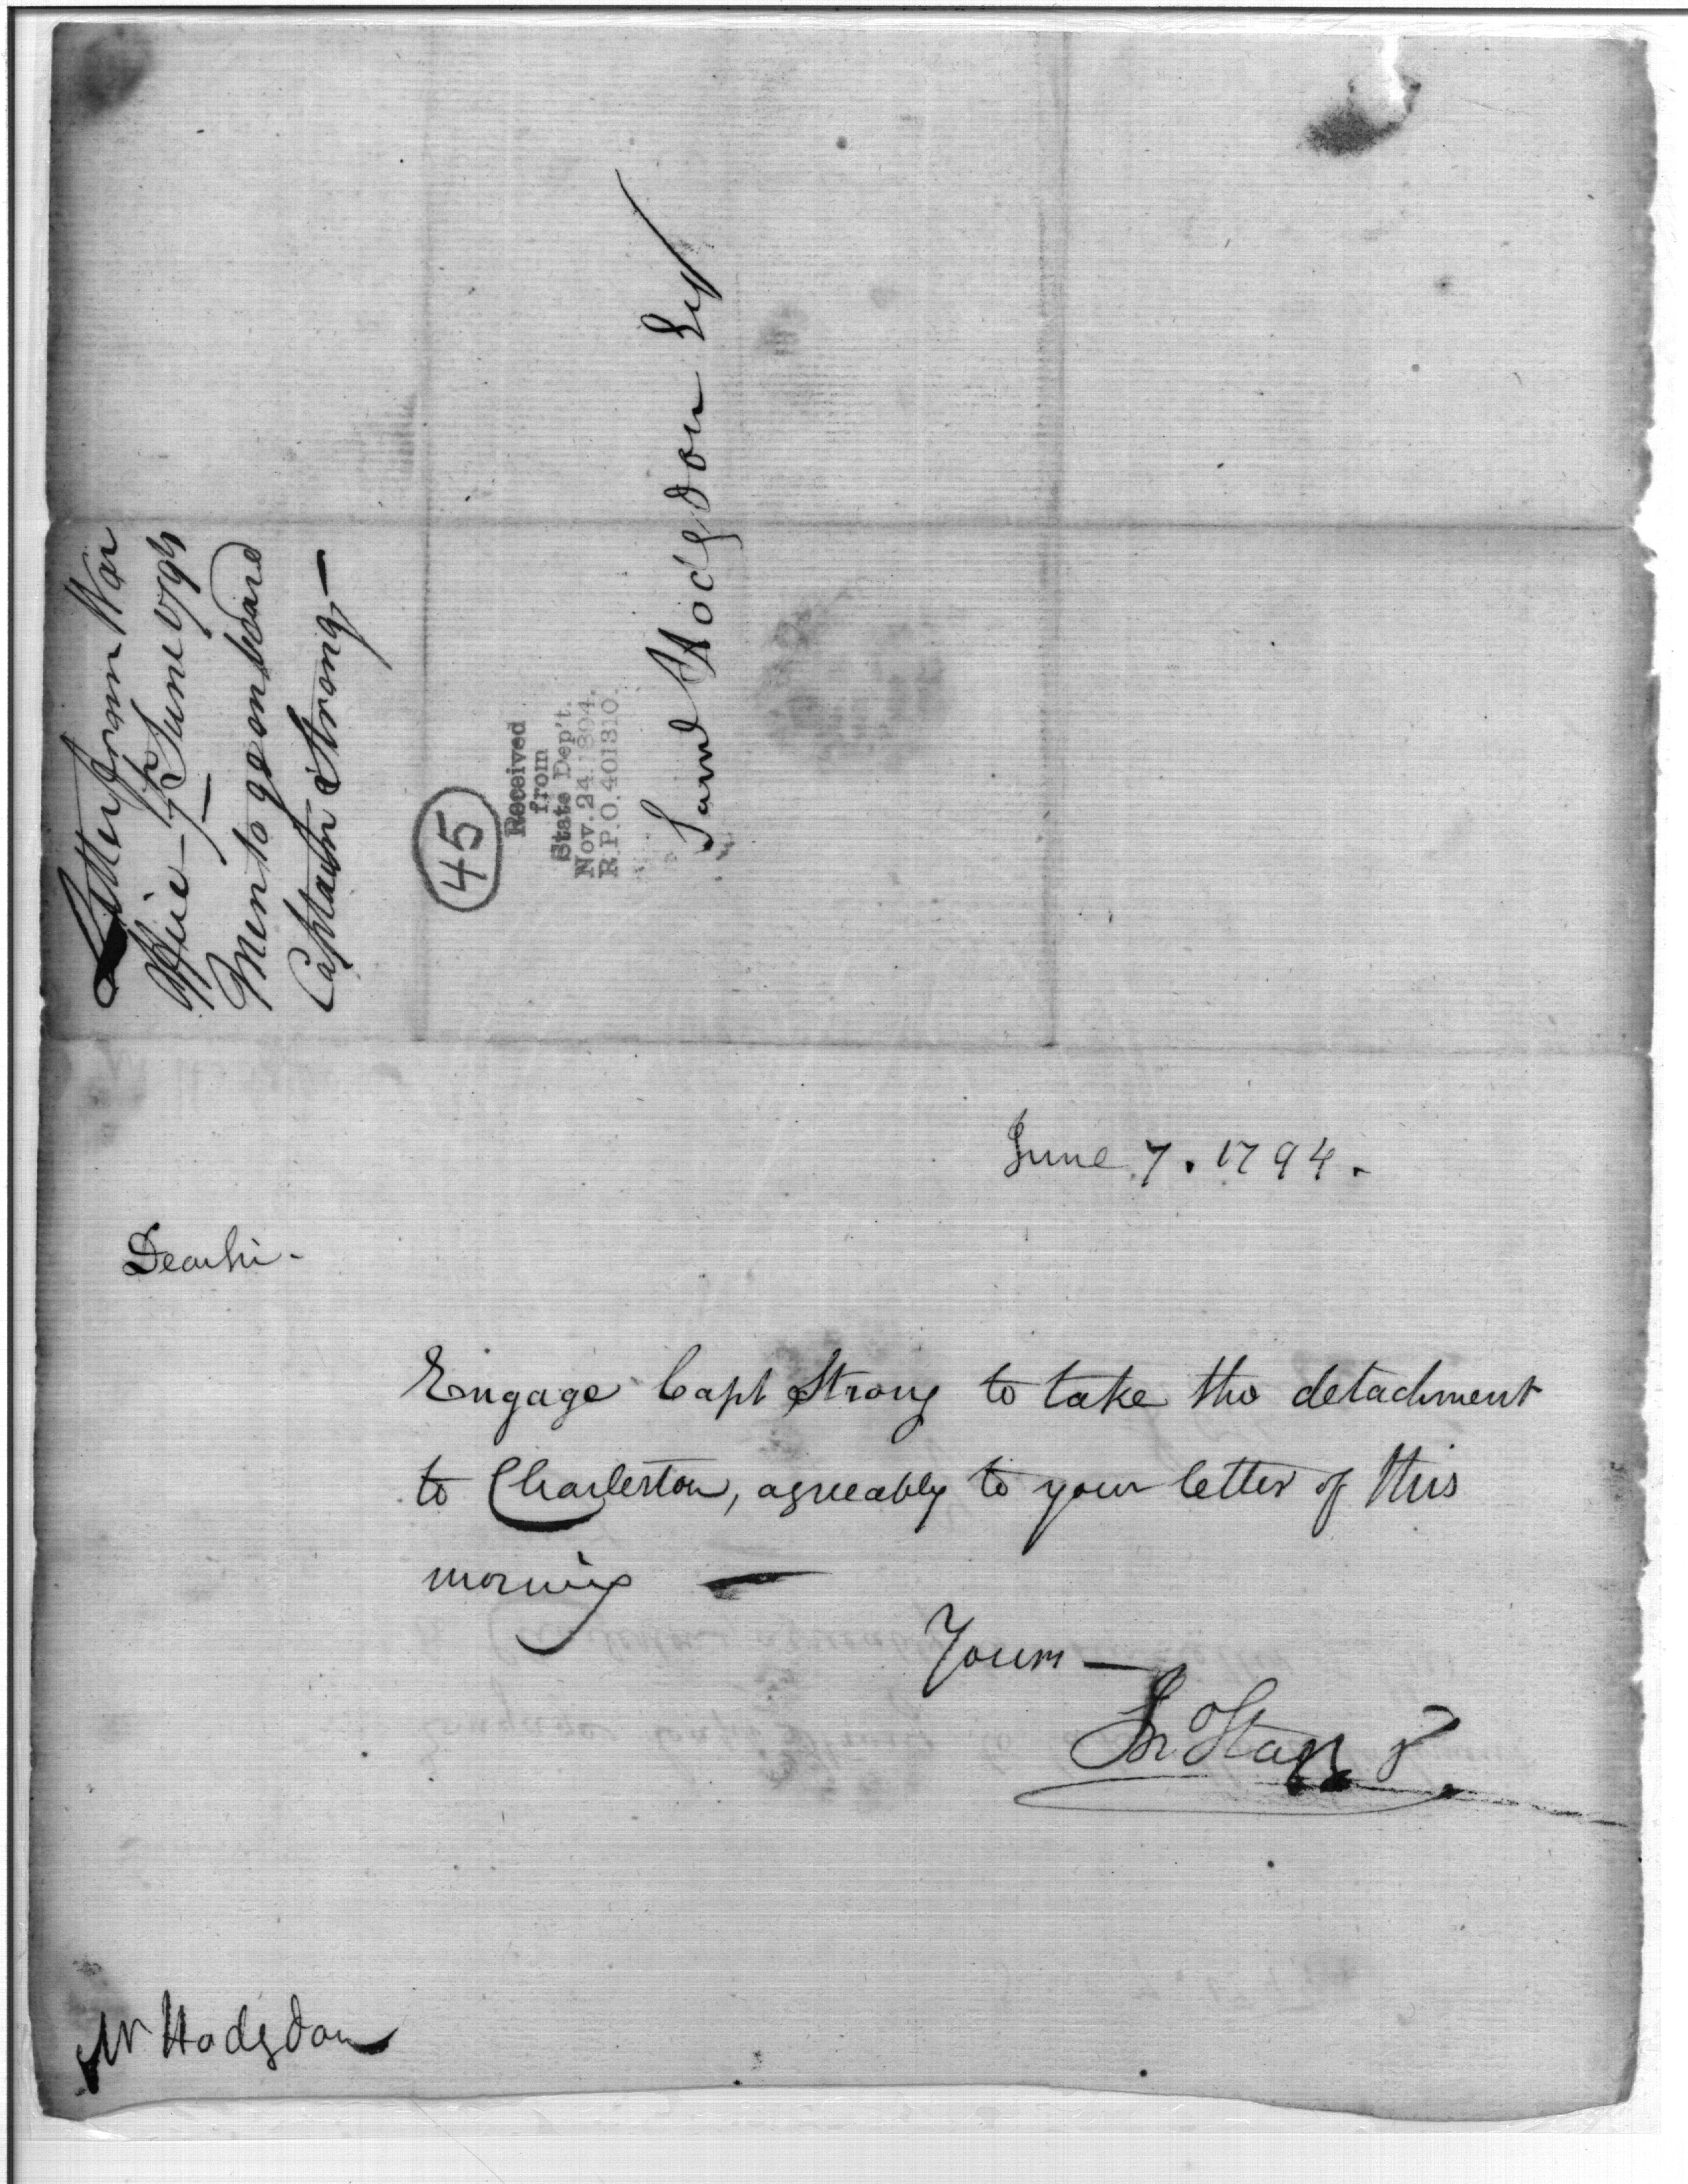 Letter from War
Office - 7th June 1794
Men to go on board
Captain Strong -
45
Received
from
State Dep't.
Nov. 24. 1894.
R.P.O. 401310.
Saml Hodgdon Esqr
June 7. 1794.
Dear sir -
Engage Capt Strong to take the detachment
to Charleston, agreeably to your letter of this
morning —
Yours —
Jno Stagg Jr
Mr Hodgdon